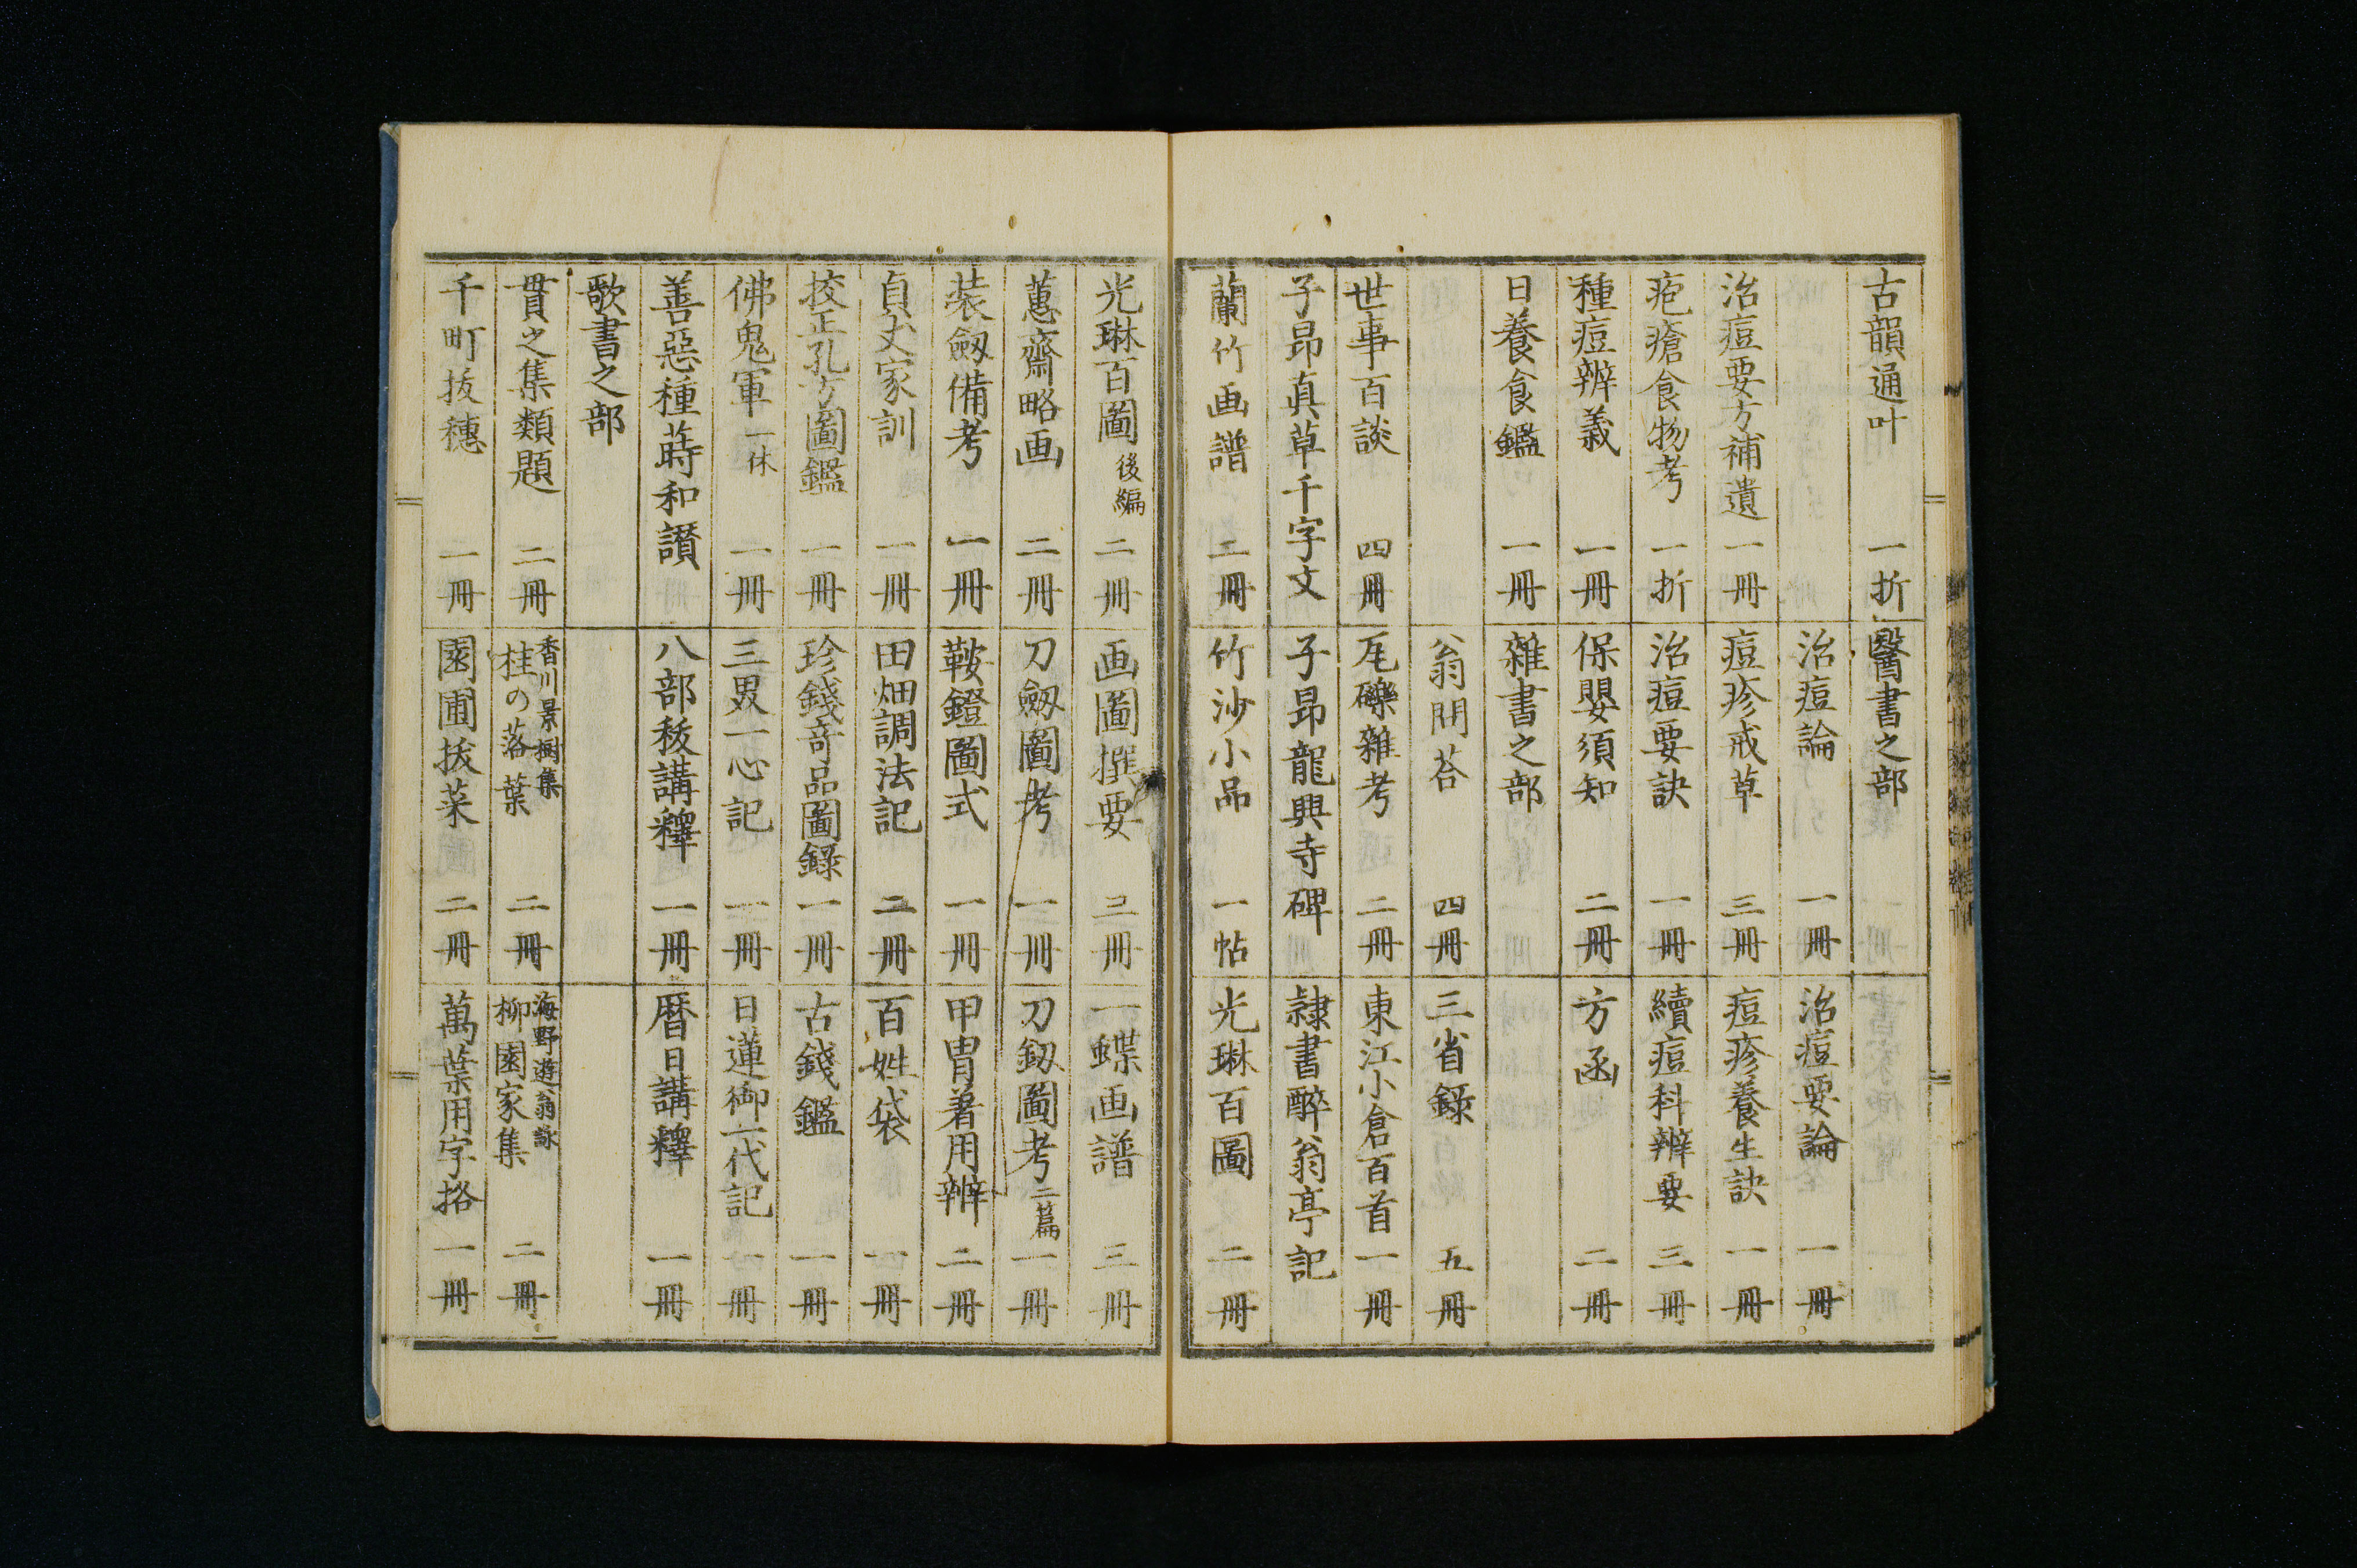 古韻通叶 一折 醫書之部
治痘論 一冊 治痘要論 一冊
治痘要方補遺 一冊 痘疹戒草 三冊 痘疹養生訣 一冊
疱瘡食物考 一折 治痘要訣 一冊 續痘科辨要 三冊
種痘辨義 一冊 保嬰須知 二冊 方函 二冊
日養食鑑 一冊 雜書之部
翁問荅 四冊 三省録 五冊
世事百談 四冊 瓦礫雜考 二冊 東江小倉百首 一冊
子昂真草千字文 子昂龍興寺碑 隷書醉翁亭記
蘭竹画譜 二冊 竹沙小品 一帖 光琳百圖 二冊
光琳百圖 後編 二冊 画圖撰要 三冊 一蝶画譜 三冊
蕙齋略画 二冊 刀劔圖考 一冊 刀劔圖考 二篇 一冊
装劔備考 一冊 鞍鐙圖式 一冊 甲冑着用辨 二冊
貞丈家訓 一冊 田畑調法記 二冊 百姓袋 一冊
挍正孔方圖鑑 一冊 珍錢竒品圖録 一冊 古錢鑑 一冊
佛鬼軍 一休 一冊 三男一心記 一冊 日蓮御一代記 一冊
善惡種蒔和讃 八部秡講釋 一冊 暦日講釋 一冊
歌書之部
貫之集類題 二冊 香川景樹集 桂の落葉 二冊 海野遊翁詠 柳園家集 二冊
千町抜穗 一冊 園圃抜菜 二冊 萬葉用字挌 一冊